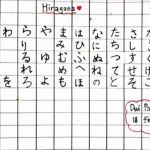 Hiragana
かきくけこ
さしすせそ
たちつてと
なにぬねの
はひふへほ
まみむめも
や ゆ よ
らりるれろ
わ を
18 Fe